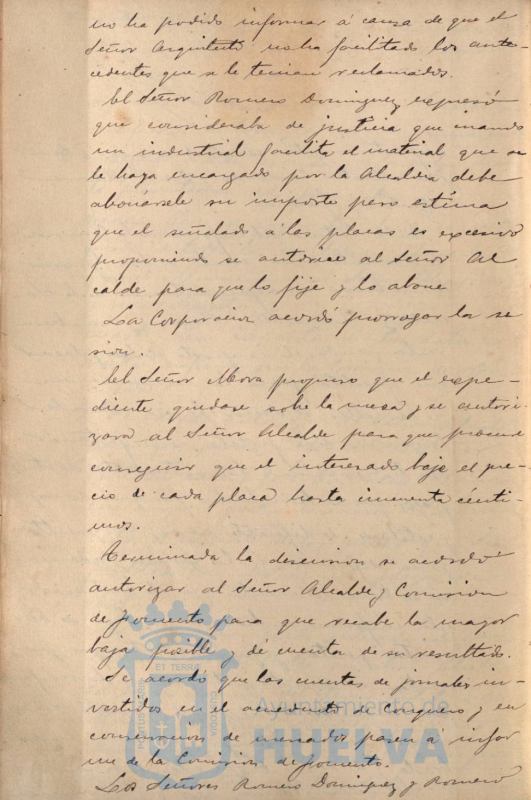 no ha podido informar á causa de que el
Señor Arquitecto no ha facilitado los ante-
cedentes que se le tenian reclamados.
El Señor Romero Dominguez expresó
que consideraba de justicia que cuando
un industrial facilita el material que se
le haya encargado por la Alcaldia debe
abonársele su importe pero estima
que el señalado á las placas es excesivo
proponiendo se autorice al Señor Al
calde para que lo fije y lo abone
La Corporacion acordó prorrogar la se
sion.
El Señor Mora propuso que el expe-
diente quedase sobre la mesa y se autori-
zara al Señor Alcalde para que procure
conseguir que el interesado baje el pre-
cio de cada placa hasta cincuenta cénti-
mos.
Terminada la discusion se acordó
autorizar al Señor Alcalde y Comision
de fomento para que recabe la mayor
baja posible y dé cuenta de su resultado.
Se acordó que las cuentas de jornales in-
vertidos en el acueducto de Conquero y en
conservacion de mercados pasen á infor
me de la Comision de fomento.
Los Señores Romero Dominguez y Romero
ET TERRA
Ayuntamiento de
HUELVA